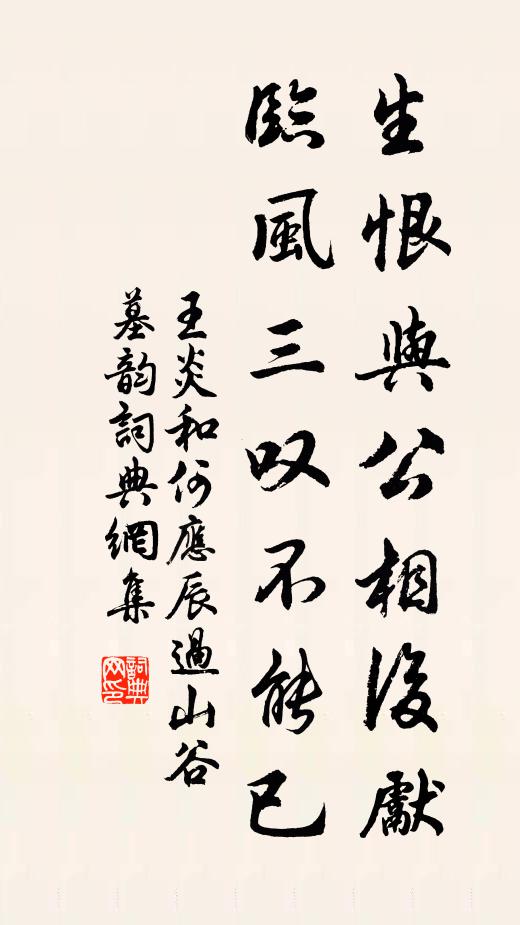 生恨與公相後獻
臨風三叹不能已
王炎和何應辰過山谷
墓韵詞典網集
詞典网印